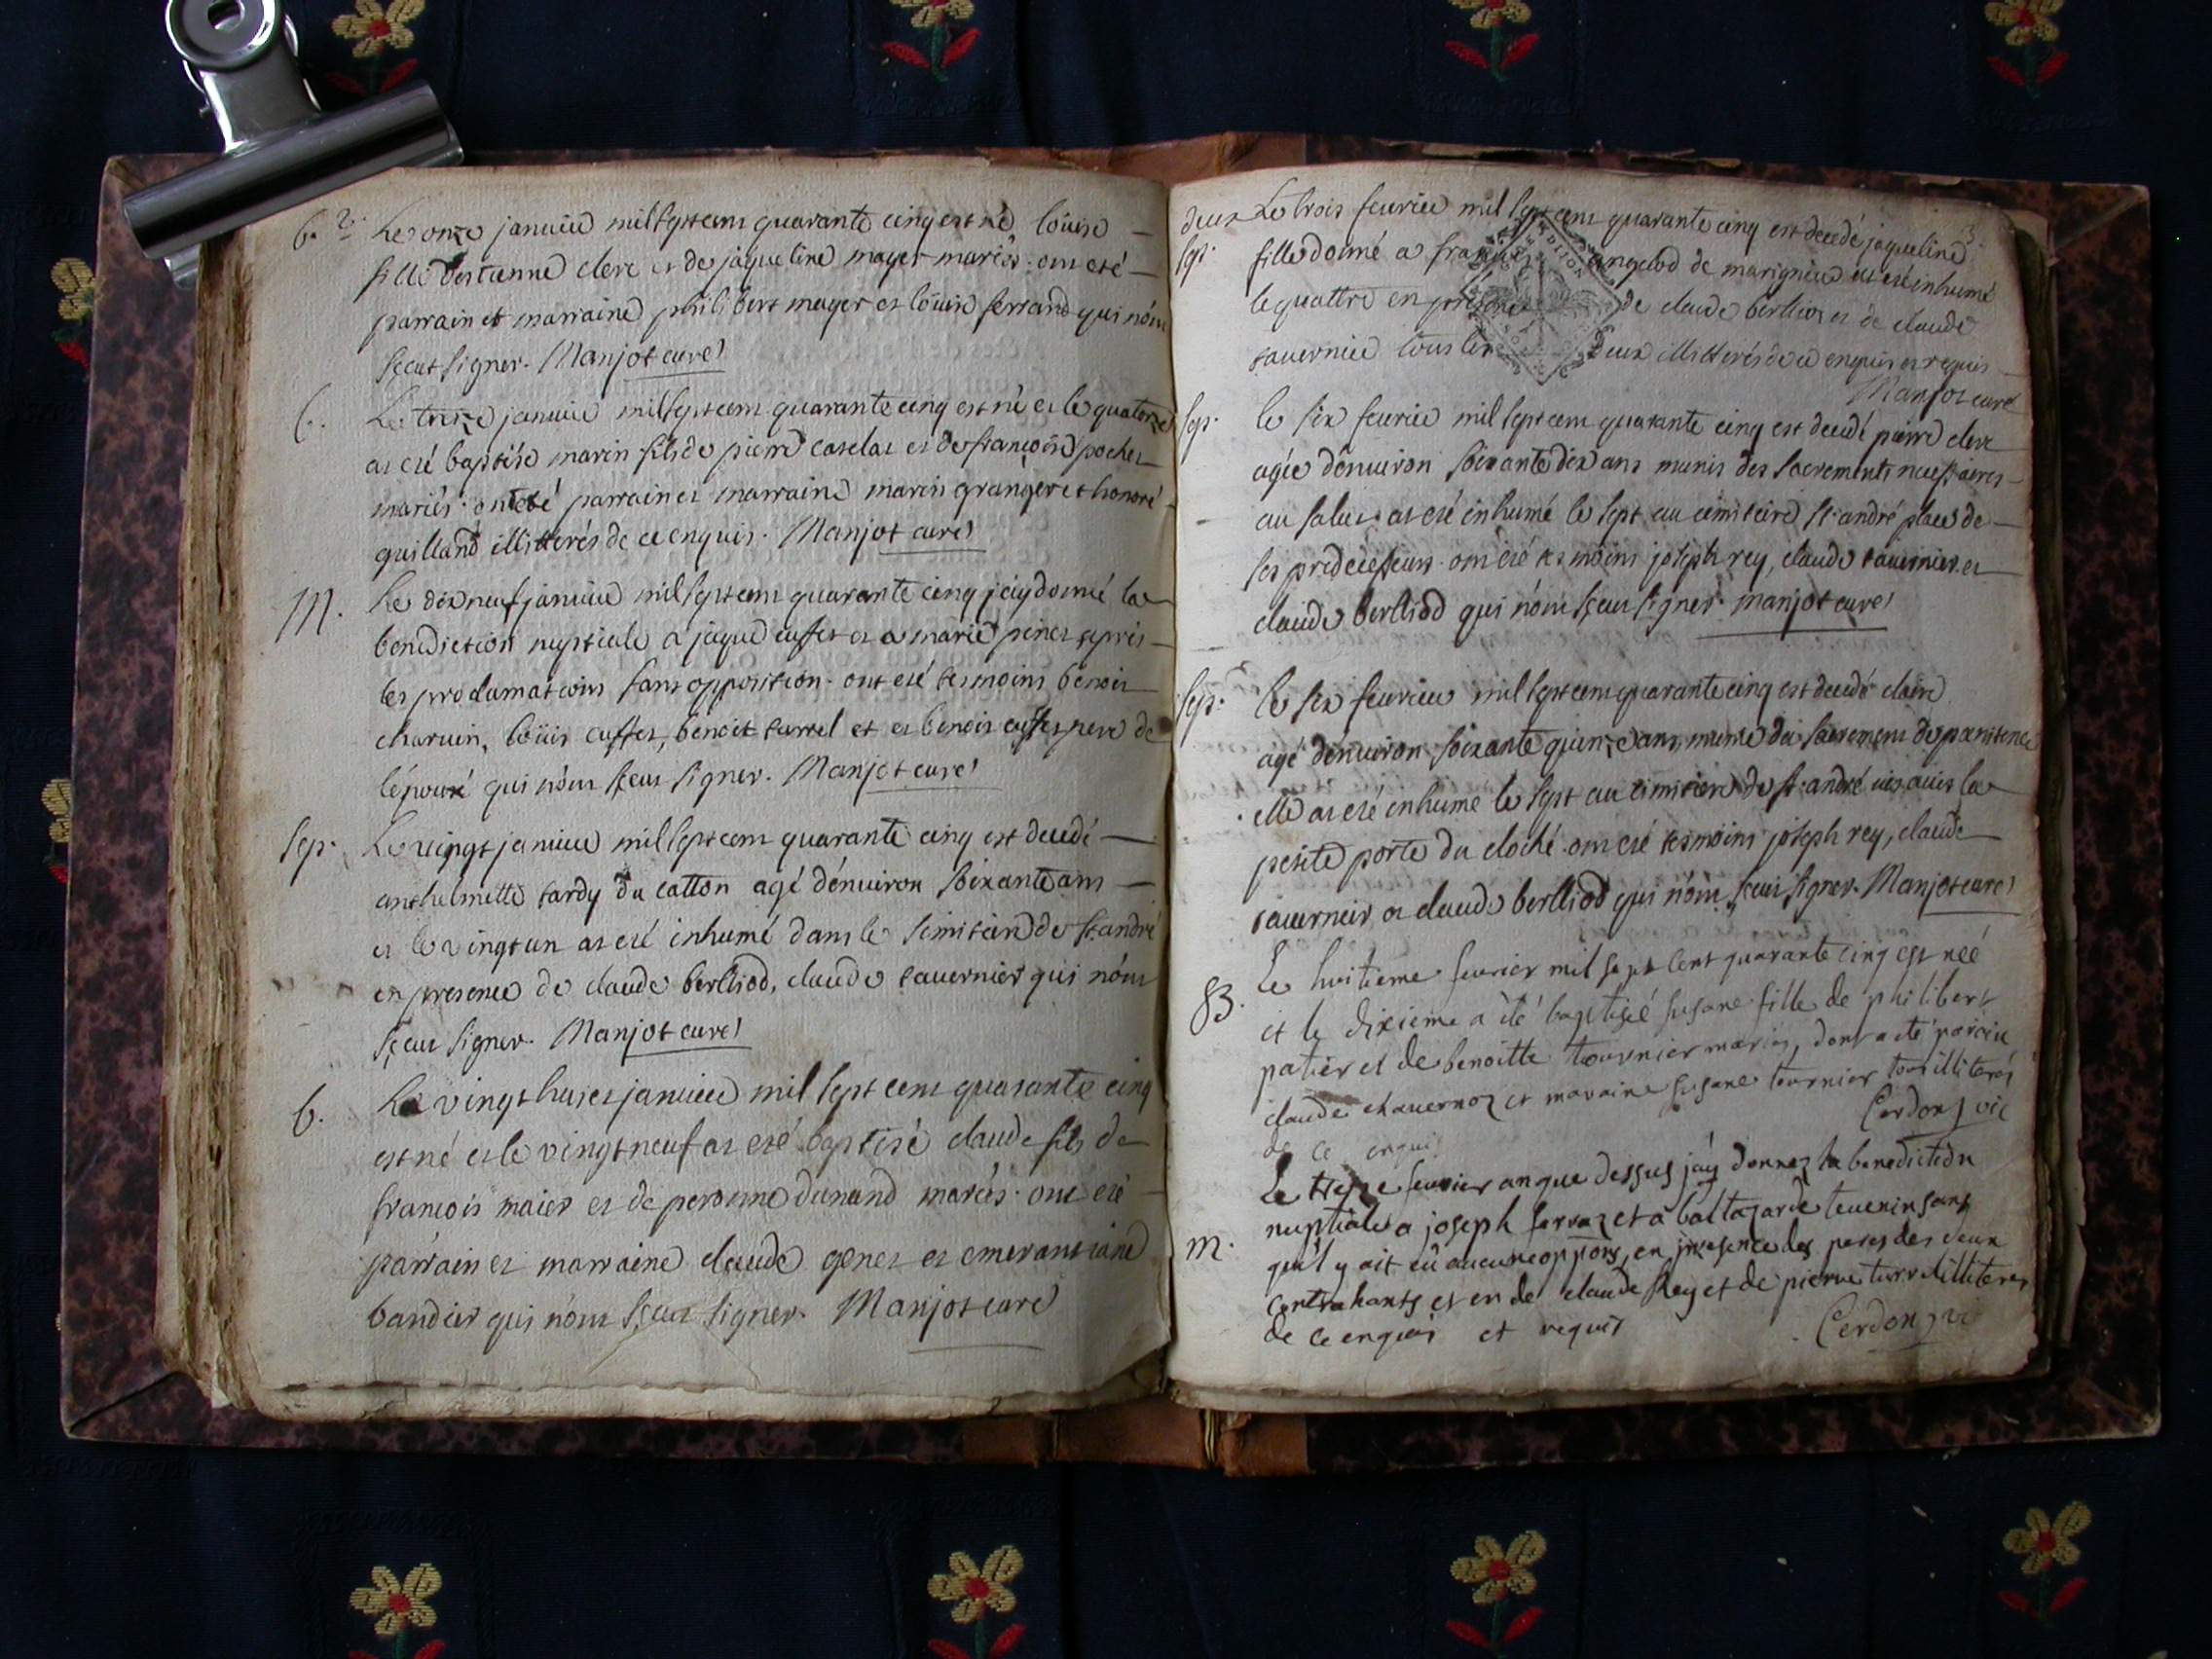 b. 2. Le onze januier mil sept cens quarante cinq est né loüise
fille destienne clerc et de jaqueline mayer mariés. ont eté
parrain et marraine philibert mayer et loüise ferrand qui n'ont
sçeut signer. Manjot curé
b. Le treize januier mil sept cens quarante cinq est né et le quatorze
at eté baptisé marin fils de pierre caselat et de françoise pochet
mariés. ont eté parrain et marraine marin granger et honoré
guilland illitterés de ce enquis. Manjot curé
M. Le dixneuf januier mil sept cens quarante cinq j'ay donné la
benediction nuptiale a jaque cuffet et a marie pinet apris
les proclamations sans opposition. ont eté tesmoins benoit
charuin, loüis cuffet, benoit turrel et et benoit cuffet pere de
l'épouxé qui n'ont sçeut signer. Manjot curé
sep. Le vingt januier mil sept cens quarante cinq est decedé
anthelmette tardy du catton agé dénuiron soixante ans
et le vingt un at eté inhumé dans le simitiere de st. andré
en presence de claude berlliod, claude tauernier qui n'ont
sçeut signer. Manjot curé
b. Le vingt huict januier mil sept cens quarante cinq
est né et le vingt neuf at eté baptisé claude fils de
françois maier et de peronne dunand mariés. ont eté
parrain et marraine claude genet et emerantiane
bandier qui n'ont sçeut signer. Manjot curé
deux Le trois feurier mil sept cens quarante cinq est decedé jaqueline
sep. fille donné a françois angelod de marignieu at eté inhumé
le quattre en presence de claude berlliod et de claude
tauernier tous les deux illitterés de ce enquis et requis
Manjot curé
sep. le six feurier mil sept cens quarante cinq est decedé pierre clerc
agée dénuiron soixante dix ans munis des sacrements necessaires
au salut. at eté inhumé le sept au cimitiere st. andré place de
ses predecesseurs. ont eté tesmoins joseph rey, claude tauernier et
claude berlliod qui n'ont sçeut signer. manjot curé
sep. le six feurier mil sept cens quarante cinq est decedé claire
agé dénuiron soixante quinze ans, munie du sacrement de pænitence
elle at eté inhumé le sept au cimitiere de st. andré vis auis la
petite porte du cloché. ont eté tesmoins joseph rey, claude
tauernier et claude berlliod qui n'ont sçeut signer. Manjot curé
B. Le huitieme feurier mil sept cent quarante cinq est neé
et le dixieme a eté baptiseé susane fille de philibert
patier et de benoitte tournier mariés, dont a eté parain
claude chauernoz et maraine susane tournier tous illiterés
de ce enquis Cerdon vic
Le treize feurier an que dessus j'ay donnez la benediction
m. nuptiale a joseph ferraz et a baltazarde teuenin sans
qu'il y ait eû aucune oppõns, en presence des peres des deux
contrahants et en de claude Rey et de pierre turrel illiteres
de ce enquis et requis Cerdon vic